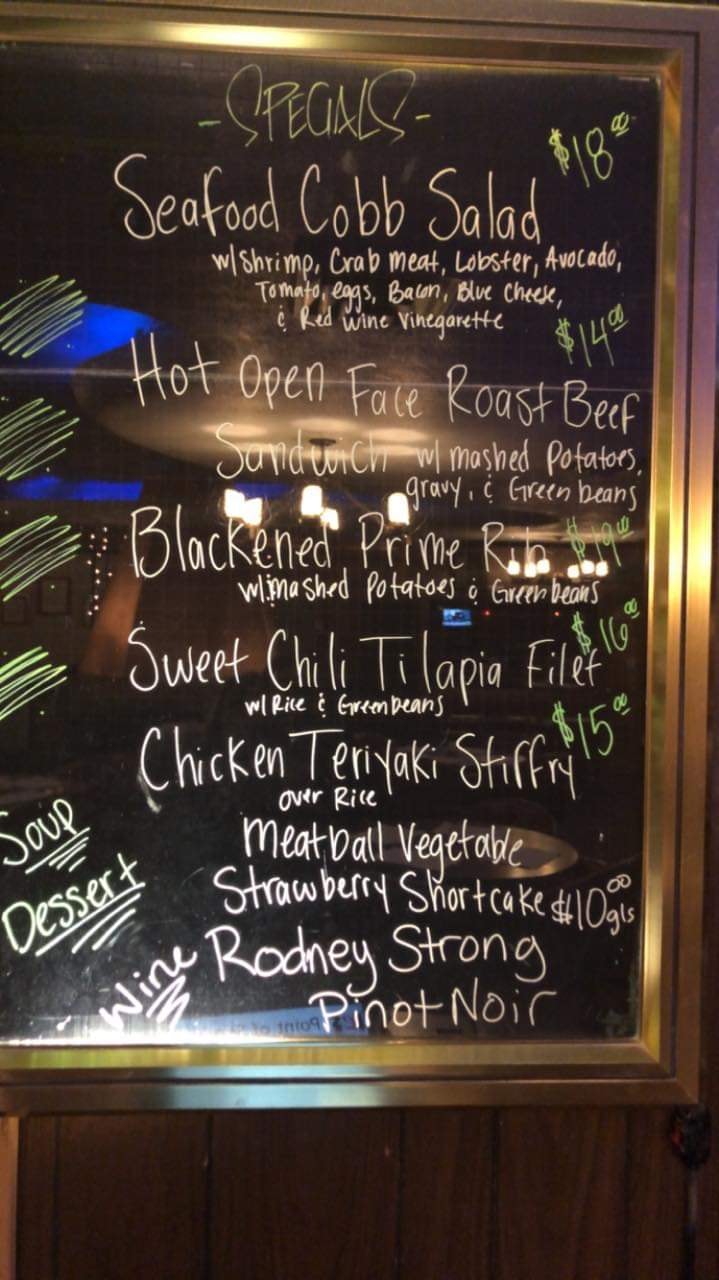 -SPECIALS-
$18.00
Seafood Cobb Salad
w/shrimp, Crab meat, Lobster, Avocado,
Tomato, eggs, Bacon, Blue Cheese,
& Red Wine Vinegarette
$14.00
Hot Open Face Roast Beef
Sandwich w/ mashed Potatoes,
gravy, & Green beans
Blackened Prime Rib $19.00
w/mashed Potatoes & Green beans
$16.00
Sweet Chili Tilapia Filet
w/ Rice & Green beans
$15.00
Chicken Teriyaki Stiffry
over Rice
Soup Meatball Vegetable
Dessert Strawberry Shortcake
$10.00 gls
Wine Rodney Strong
Pinot Noir